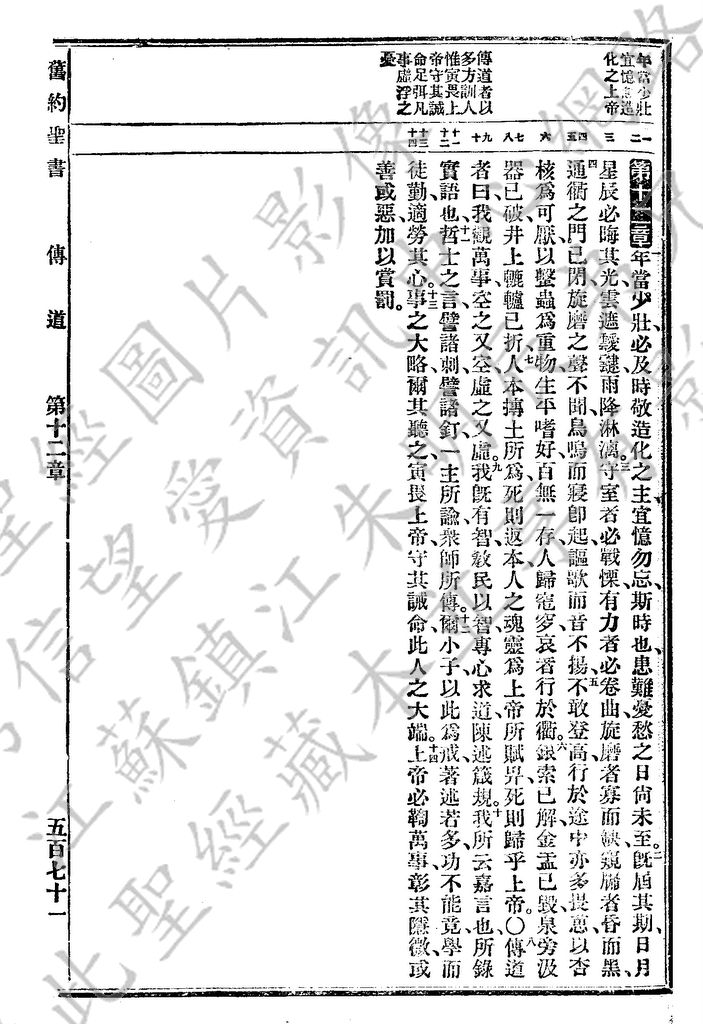 年當少壯
宜憶造
化之上帝
傳道者以
多方訓人
惟寅畏上
帝守其誡
命足弭凡
事虛浮之
憂
一
二
三
四
五
六
七
八
九
十
十一
十二
十三
十四
第十二章一年當少壯必及時敬造化之主宜憶勿忘斯時也患難憂愁之日尙未至二旣屆其期日月
星辰必晦其光雲遮靉靆雨降淋漓三守室者必戰慄有力者必卷曲旋磨者寡而缺窺牖者昏而黑
四通衢之門已閉旋磨之聲不聞鳥鳴而寢卽起謳歌而音不揚五不敢登高行於途中亦多畏葸以杏
核爲可厭以螽蟲爲重物生平嗜好百無一存人歸窀穸哀者行於衢六銀索已解金盂已毀泉旁汲
器已破井上轆轤已折七人本摶土所爲死則返本人之魂靈爲上帝所賦畀死則歸乎上帝〇八傳道
者曰我觀萬事空之又空虛之又虛九我旣有智敎民以智專心求道陳述箴規十我所云嘉言也所錄
實語也十一哲士之言譬諸刺譬諸釘一主所諭衆師所傳十二爾小子以此爲戒著述若多功不能竟學而
徒勤適勞其心十三事之大略爾其聽之寅畏上帝守其誡命此人之大端十四上帝必鞫萬事彰其隱微或
善或惡加以賞罰
舊約聖書 傳道 第十二章 五百七十一